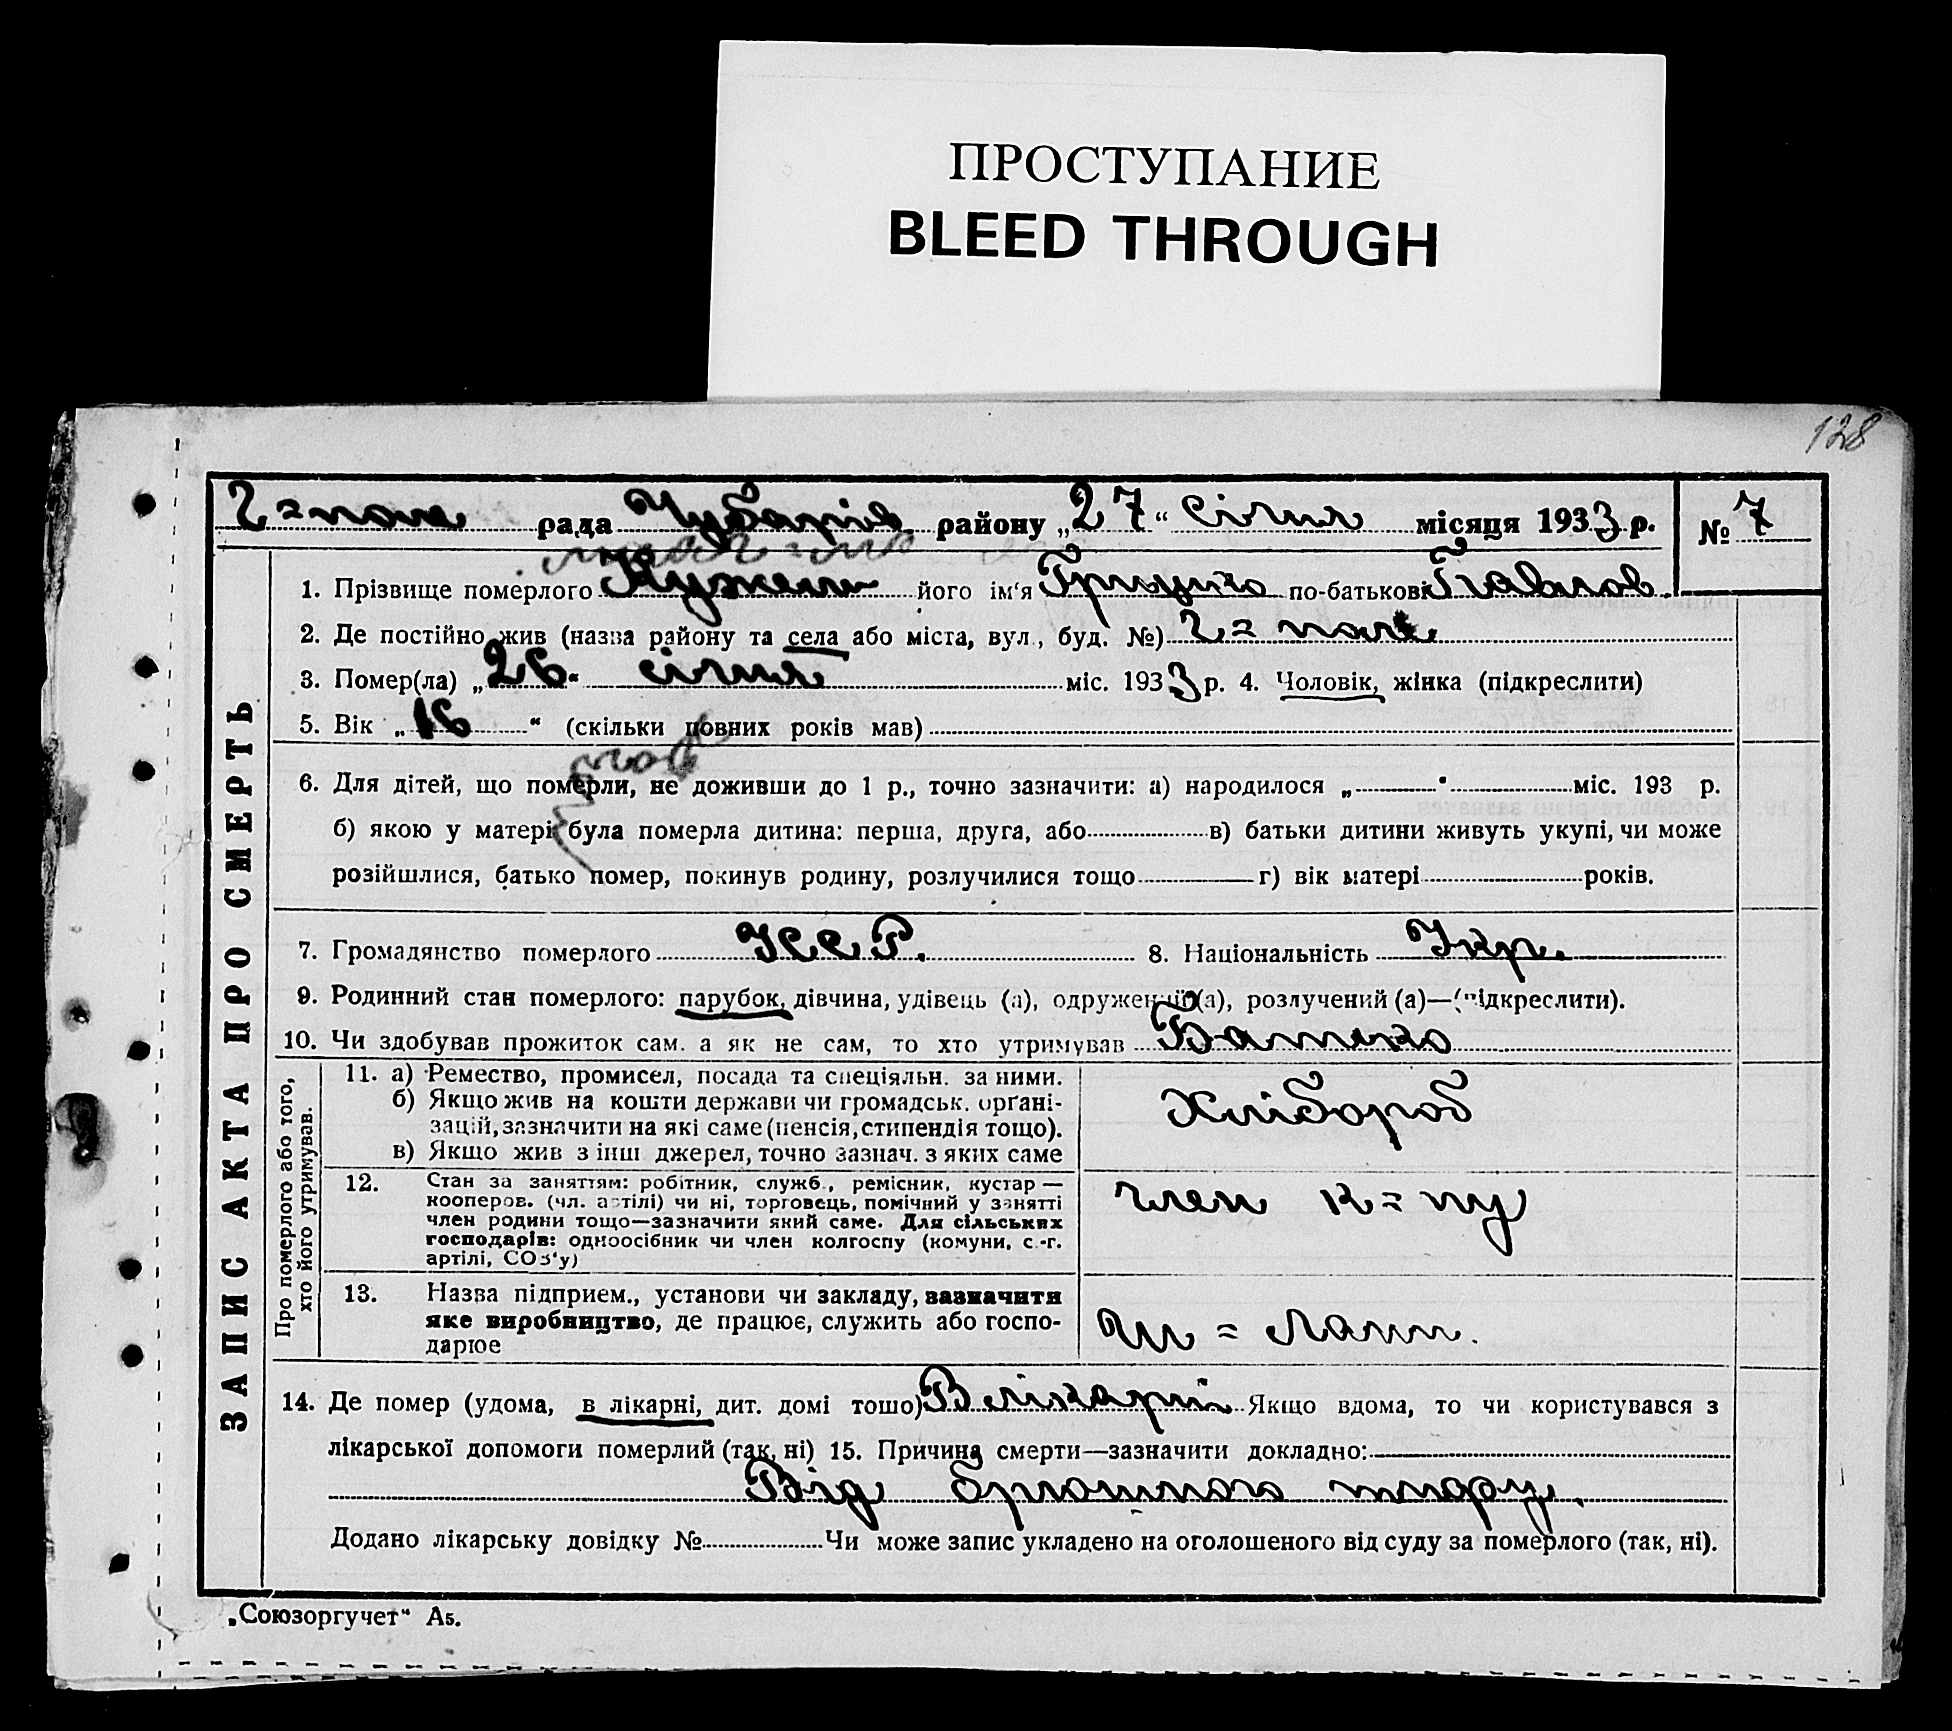 ПРОСТУПАНИЕ
BLEED THROUGH
128
рада Чубарів району „27“ січня місяця 1933 р. № 7
1. Прізвище померлого його ім‘я Грицько по-батькові Павлов.
2. Де постійно жив (назва району та села або міста, вул., буд. №)
3. Помер(ла) „26“ січня міс. 1933 р. 4. Чоловік, жінка (підкреслити)
5. Вік „16“ (скільки повних років мав)
6. Для дітей, що померли, не доживши до 1 р., точно зазначити: а) народилося „ “ міс. 193 р.
б) якою у матері була померла дитина: перша, друга, або в) батьки дитини живуть укупі, чи може
розійшлися, батько помер, покинув родину, розлучилися тощо г) вік матері років.
7. Громадянство померлого УССР. 8. Національність Укр.
9. Родинний стан померлого: парубок, дівчина, удівець (а), одружений (а), розлучений (а)—(підкреслити).
10. Чи здобував прожиток сам. а як не сам, то хто утримував Батько
ЗАПИС АКТА ПРО СМЕРТЬ
Про померлого або того,
хто його утримував.
11. а) Ремество, промисел, посада та спеціяльн. за ними.
б) Якщо жив на кошти держави чи громадськ. орґані-
зацій, зазначити на які саме (пенсія, стипендія тощо).
в) Якщо жив з інш джерел, точно зазнач. з яких саме
Хлібороб
12. Стан за заняттям: робітник, служб., ремісник, кустар —
кооперов. (чл. артілі) чи ні, торговець, помічний у занятті
член родини тощо—зазначити який саме. Для сільських
господарів: одноосібник чи член колгоспу (комуни, с.-г.
артілі, СОЗ‘у)
член к=пу
13. Назва підприєм., установи чи закладу, зазначити
яке виробництво, де працює, служить або госпо-
дарює
14. Де помер (удома, в лікарні, дит. домі тощо) В лікарні Якщо вдома, то чи користувався з
лікарської допомоги померлий (так, ні) 15. Причина смерти—зазначити докладно:
Від брюшного тифу.
Додано лікарську довідку № Чи може запис укладено на оголошеного від суду за померлого (так, ні).
„Союзоргучет“ А5.